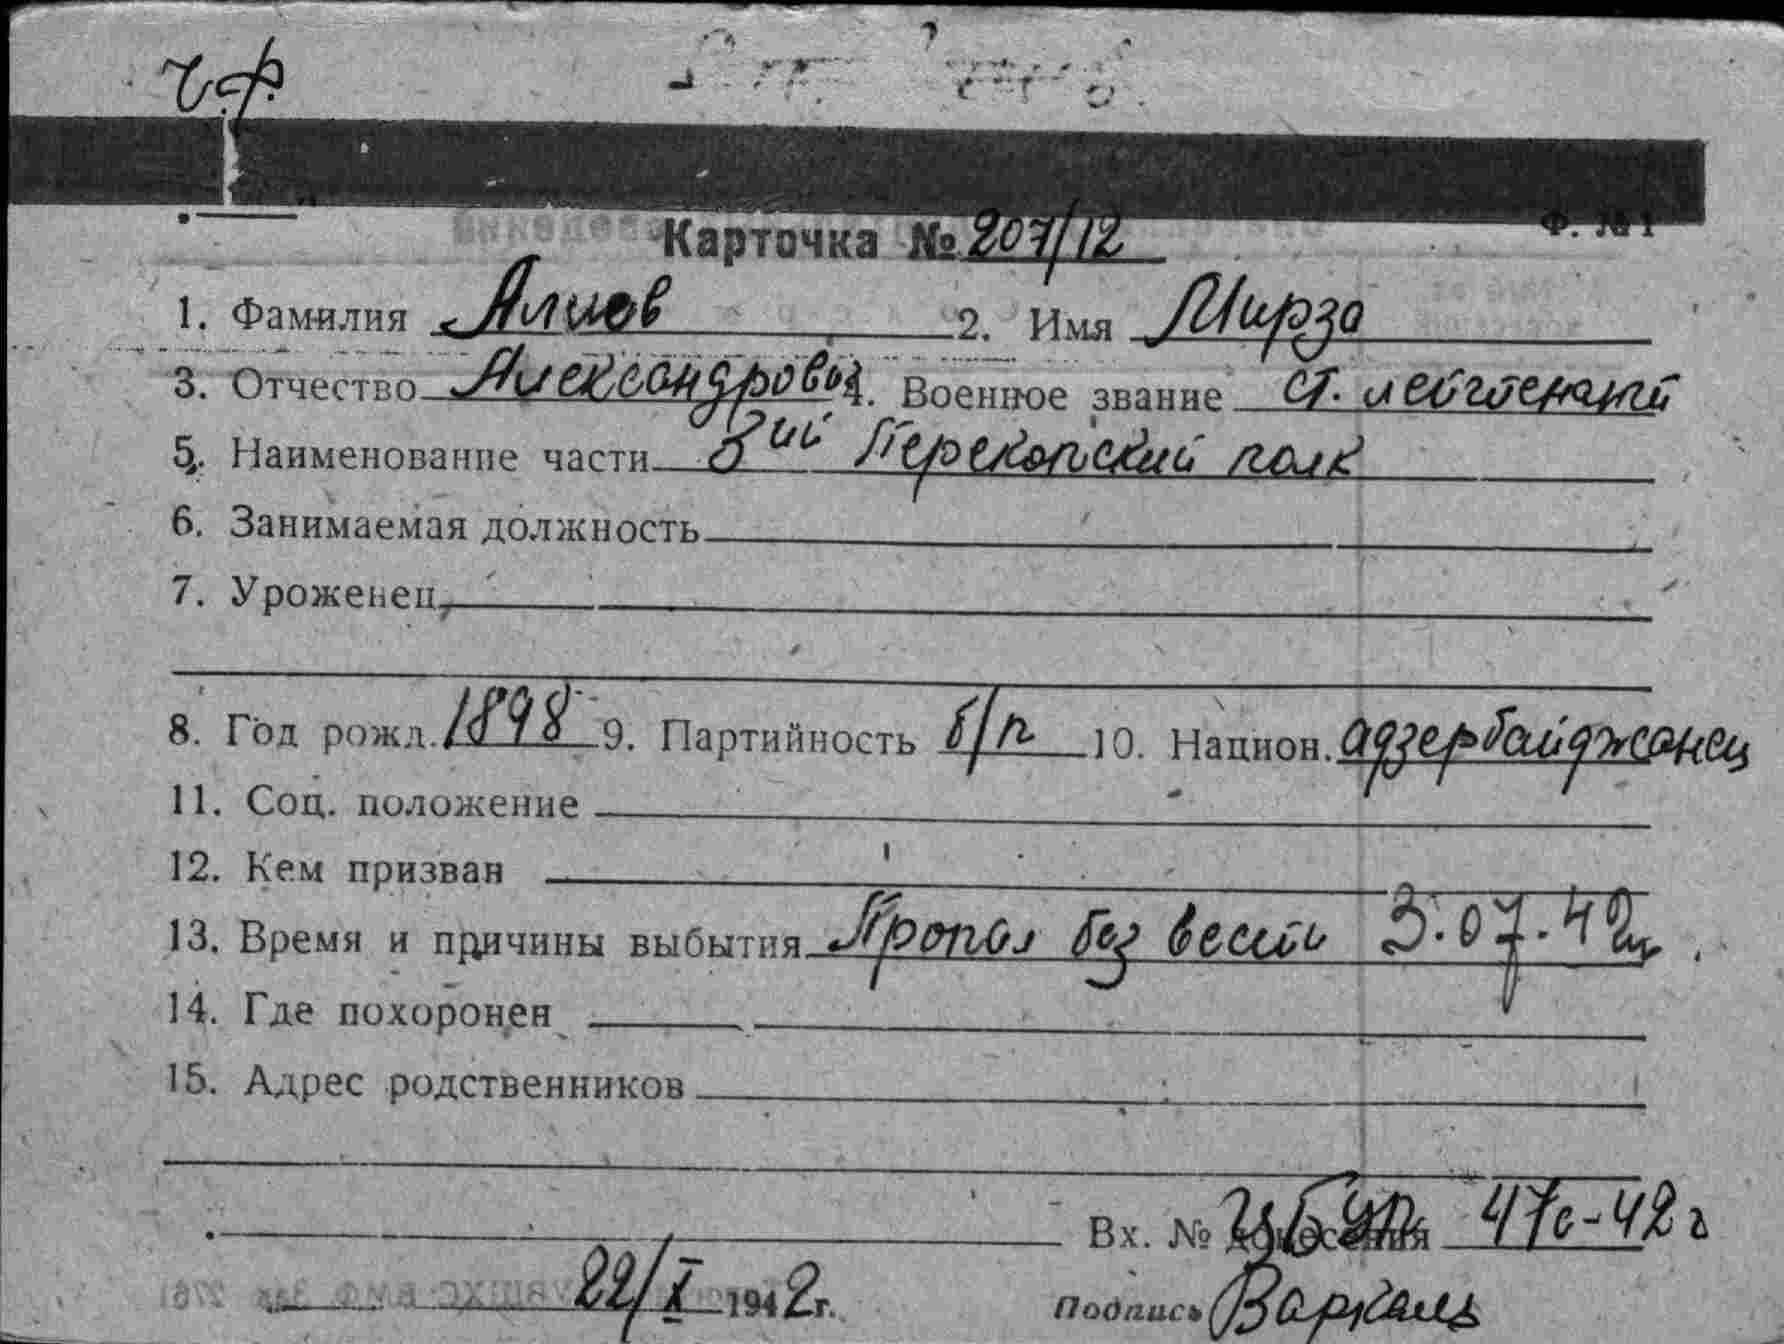 ч.ф.
Ф. №1
Карточка № 207/12
1. Фамилия Алиев 2. Имя Мирза
3. Отчество Александрович 4. Военное звание ст. лейтенант
5. Наименование части 8ий Перекопский полк
6. Занимаемая должность
7. Уроженец
8. Год рожд. 1898 9. Партийность б/п 10. Национ. адзербайджанец
11. Соц. положение
12. Кем призван
13. Время и причины выбытия Пропал без вести 3.07.42г.
14. Где похоронен
15. Адрес родственников
Вх. № 47с-42г
22/X 1942г. Подпись